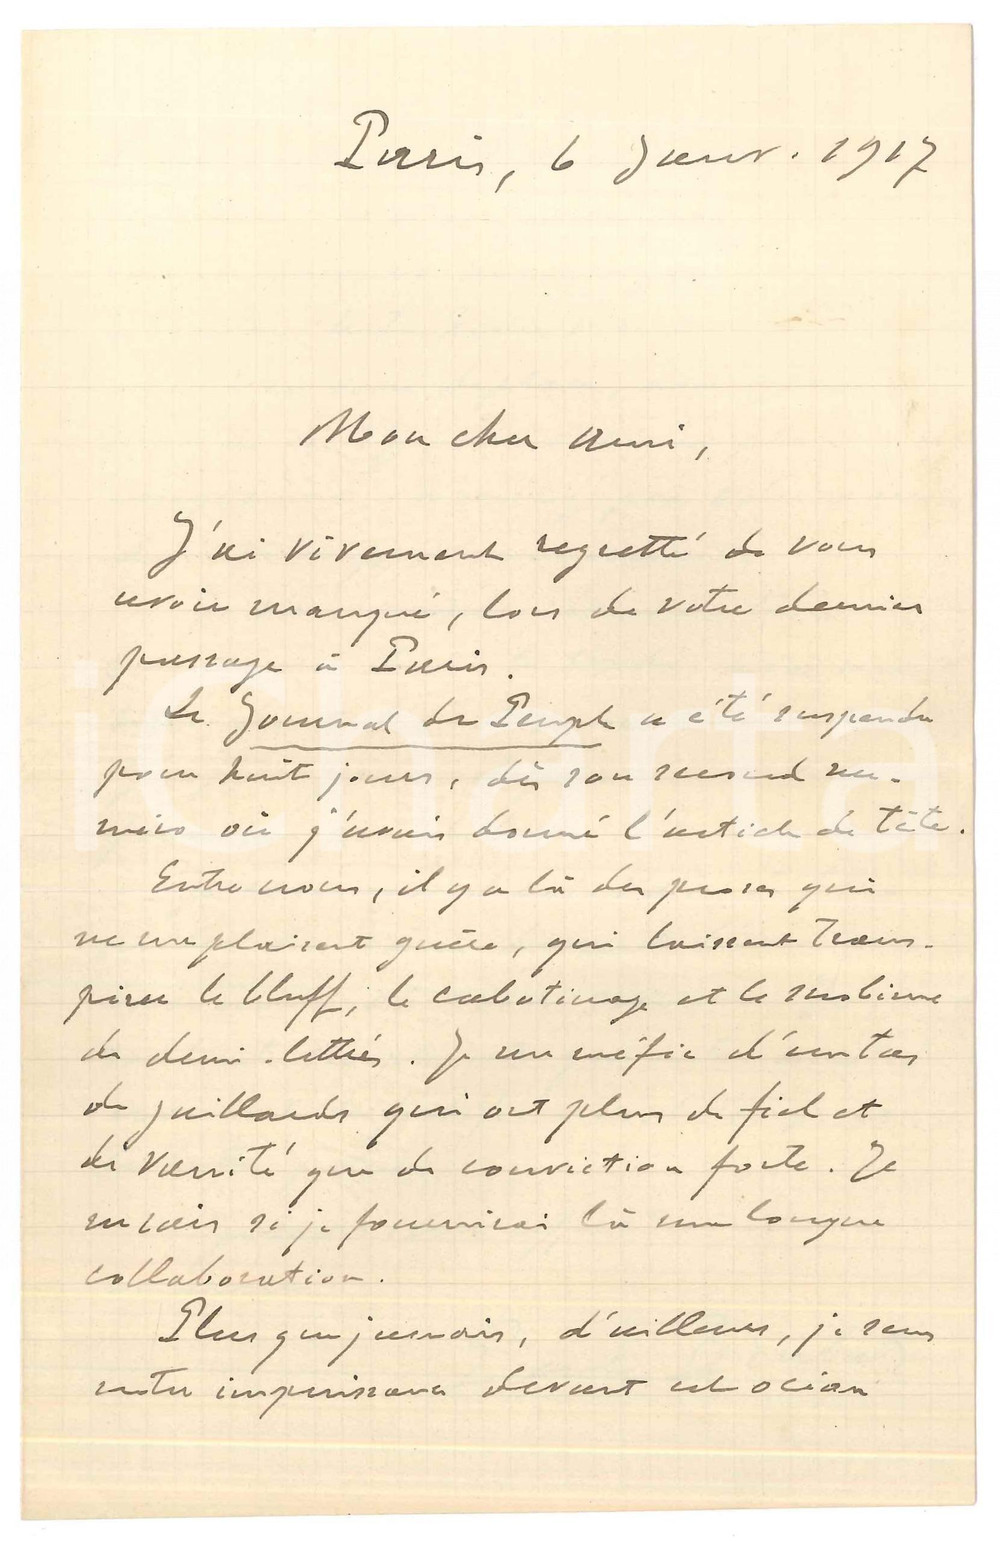 Paris, 6 Janv. 1917
Mon cher ami,
J'ai vivement regretté de vous
avoir manqué, lors de votre dernier
passage à Paris.
Le Journal du Peuple a été suspendu
pour huit jours, dès son second nu-
méro où j'avais donné l'article de tête.
Entre nous, il y a là des proses qui
ne me plaisent guère, qui laissent trans-
pirer le bluff, le cabotinage et le snobisme
de demi-lettrés. Je me méfie d'un tas
de gaillards qui ont plus de fiel et
de vanité que de conviction forte. Je
ne sais si je fournirai là une longue
collaboration.
Plus que jamais, d'ailleurs, je sens
notre impuissance devant cet océan